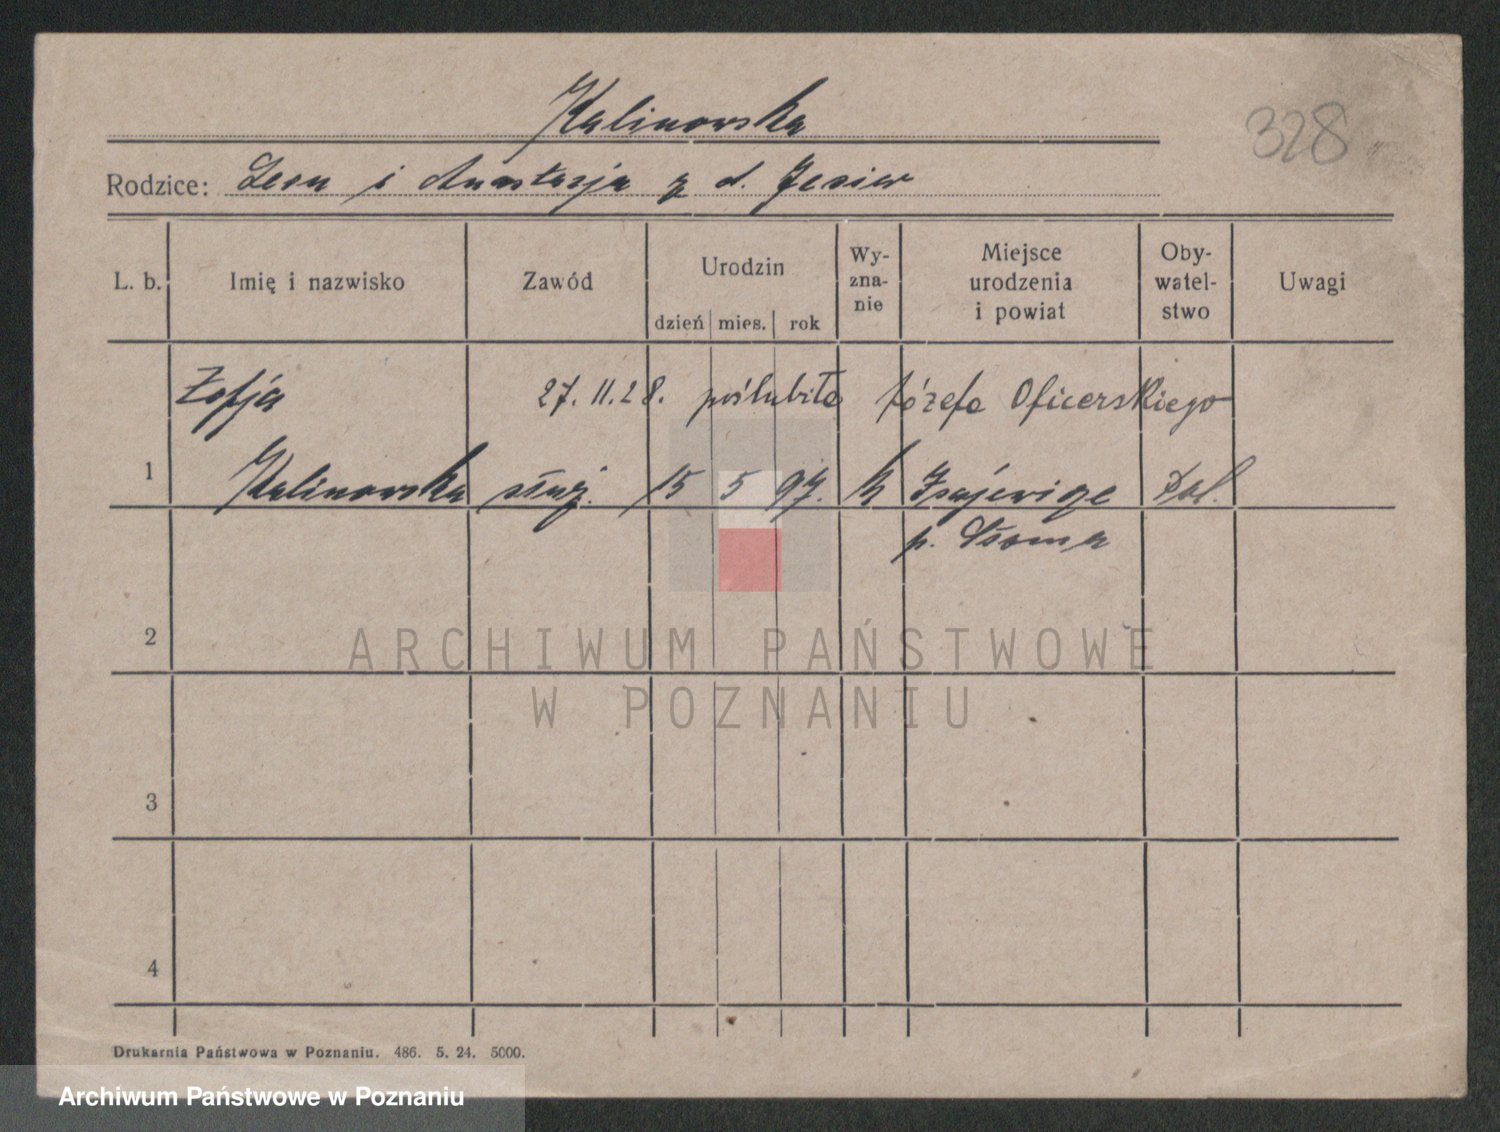 Kalinowska
328
Rodzice: Leon i Anastazja z d. Jesier
L. b.
Imię i nazwisko
Zawód
Urodzin
dzień mies. rok
Wy-
zna-
nie
Miejsce
urodzenia
i powiat
Oby-
watel-
stwo
Uwagi
Zofja 27.11.28. poślubiła Józefa Oficerskiego
1 Kalinowska służ. 15 5 97. k Pol.
p.
2
ARCHIWUM PAŃSTWOWE
W POZNANIU
3
4
Drukarnia Państwowa w Poznaniu. 486. 5. 24. 5000.
Archiwum Państwowe w Poznaniu